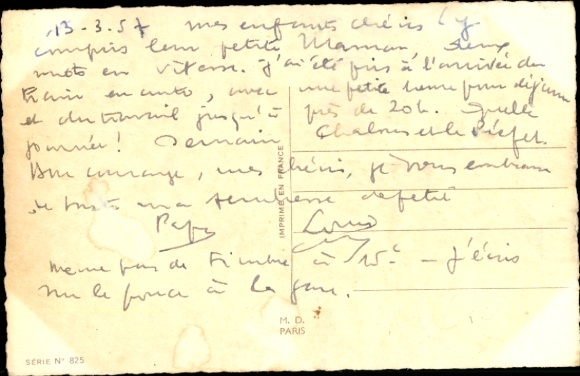 13-3.57 mes enfants chéris (y
compris leur petite Maman, deux
mots en vitesse. j'ai été pris à l'arrivée du
train en auto, avec une petite heure pour déjeuner
et du travail jusqu'à près de 20h. Quelle
journée! Demain Chalons et le Préfet.
Bon courage, mes chéris, je vous embrasse
de toute ma tendresse de petit
Papa Louis
même pas de timbre à 15c - J'écris
sur le pouce à la gare.
IMPRIMÉ EN FRANCE
M. D.
PARIS
SÉRIE N° 825